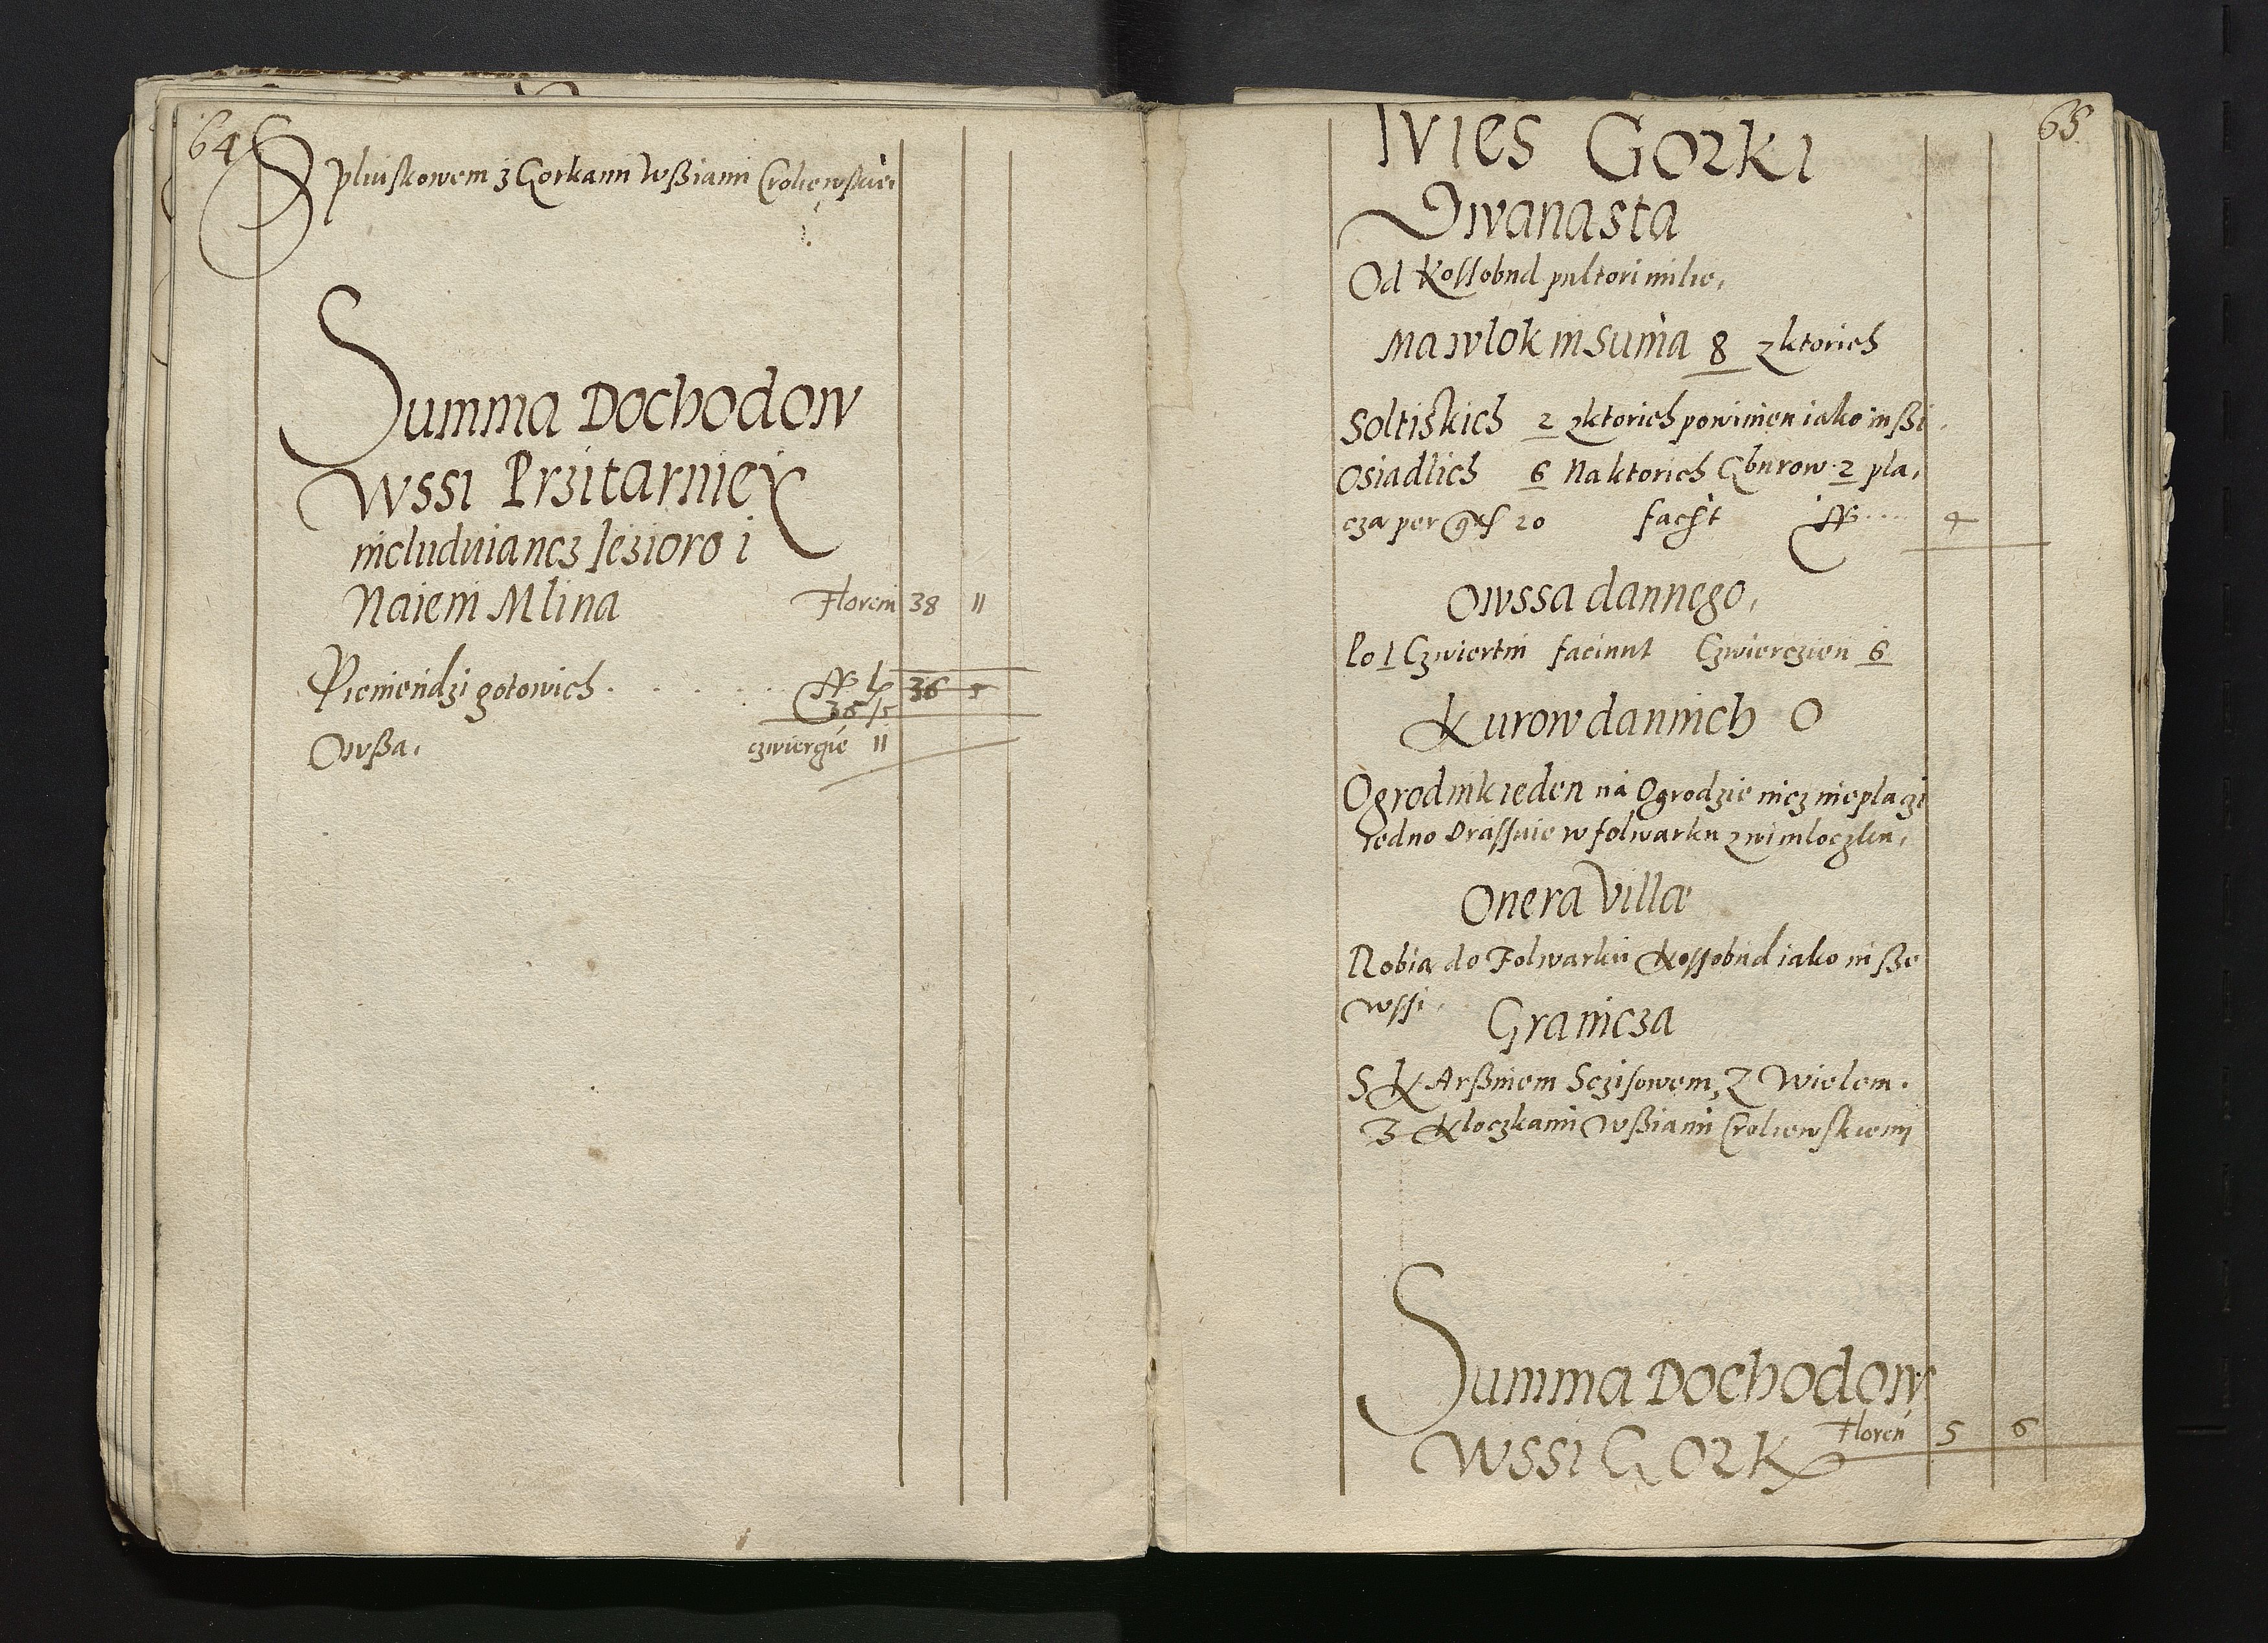 64
S pliuskowem z Gorkami Wßiami Croliewskie
Summa Dochodow
Wssi Przitarniei
includuiancz Jezioro i
Naiem Mlina Floreni 38 11
Pieniendzi gotowich 36 5
36/5
Owßa, czwiergie 11
65
Wies Gorki
Dwanasta
Od Kossobud pultori milie,
Ma wlok in Suma 8 z ktorich
Soltiskich 2 z ktorich powinien iako inßi
Osiadlich 6 Na ktorich Gburow 2 pla,
cza per gr 20 facit 4
Owssa dannego,
Po 1 Czwiertni faciunt Czwierczien 6
Kurow dannich 0
Ogrodnik ieden na Ogrodzie nicz nie placzi
iedno Prassuie w folwarku z wimloczku,
Onera Villæ
Robia do Folwarku Kossobud iako inße
wssi.
Granicza
S Karßniem Sczisowem, Z Wielem.
Z Kloczkami Wßiami Croliewskiemi
Summa Dochodow
Wssi Gork Floren 5 6